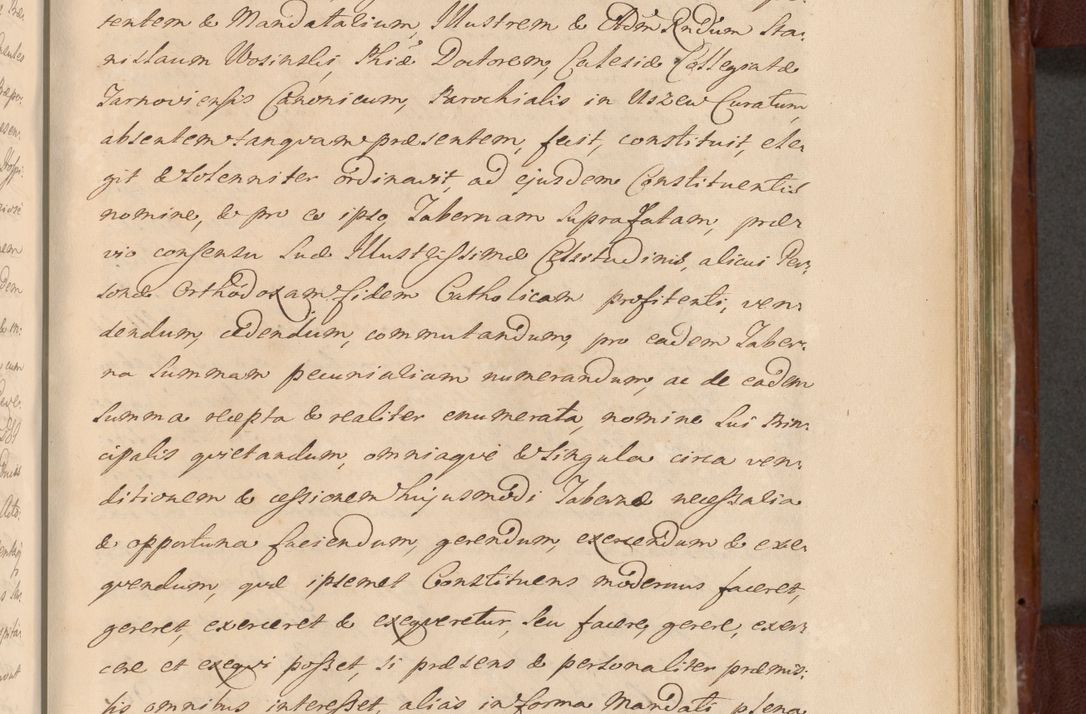 tentem & Mandatalium, Illustrem & Adm Rndum Sta:
nislaum Wosinski, Phiæ Doctorem, Ecclesiæ Collegiatæ
Tarnoviensis Canonicum, Parochialis in Uszew Curatum,
absentem tanqvam præsentem, fecit, constituit, ele:
git & solenniter ordinavit, ad ejusdem Constituentis
nomine, & pro eo ipso, Tabernam supra fatam, præ:
vio consensu Suæ Illustrissimæ Celsitudinis, alicui Per:
sonæ Orthodoxam fidem Catholicam profitenti, ven:
dendum, cedendum, commutandum, pro eadem Taber:
na summam pecuniariam numerandum, ac de eadem
summa recepta & realiter enumerata, nomine sui Prin:
cipalis qvietandum, omniaqve & singula circa ven:
ditionem & cessionem hujusmodi Tabernæ necessaria
& opportuna faciendum, gerendum, exercendum & exe:
qvendum, qvæ ipsemet Constituens modernus faceret,
gereret, exerceret & exeqveretur, seu facere, gerere, exer:
cere et exeqvi posset, si præsens & personaliter præmis:
sis omnibus interesset, alias in forma Mandati plena